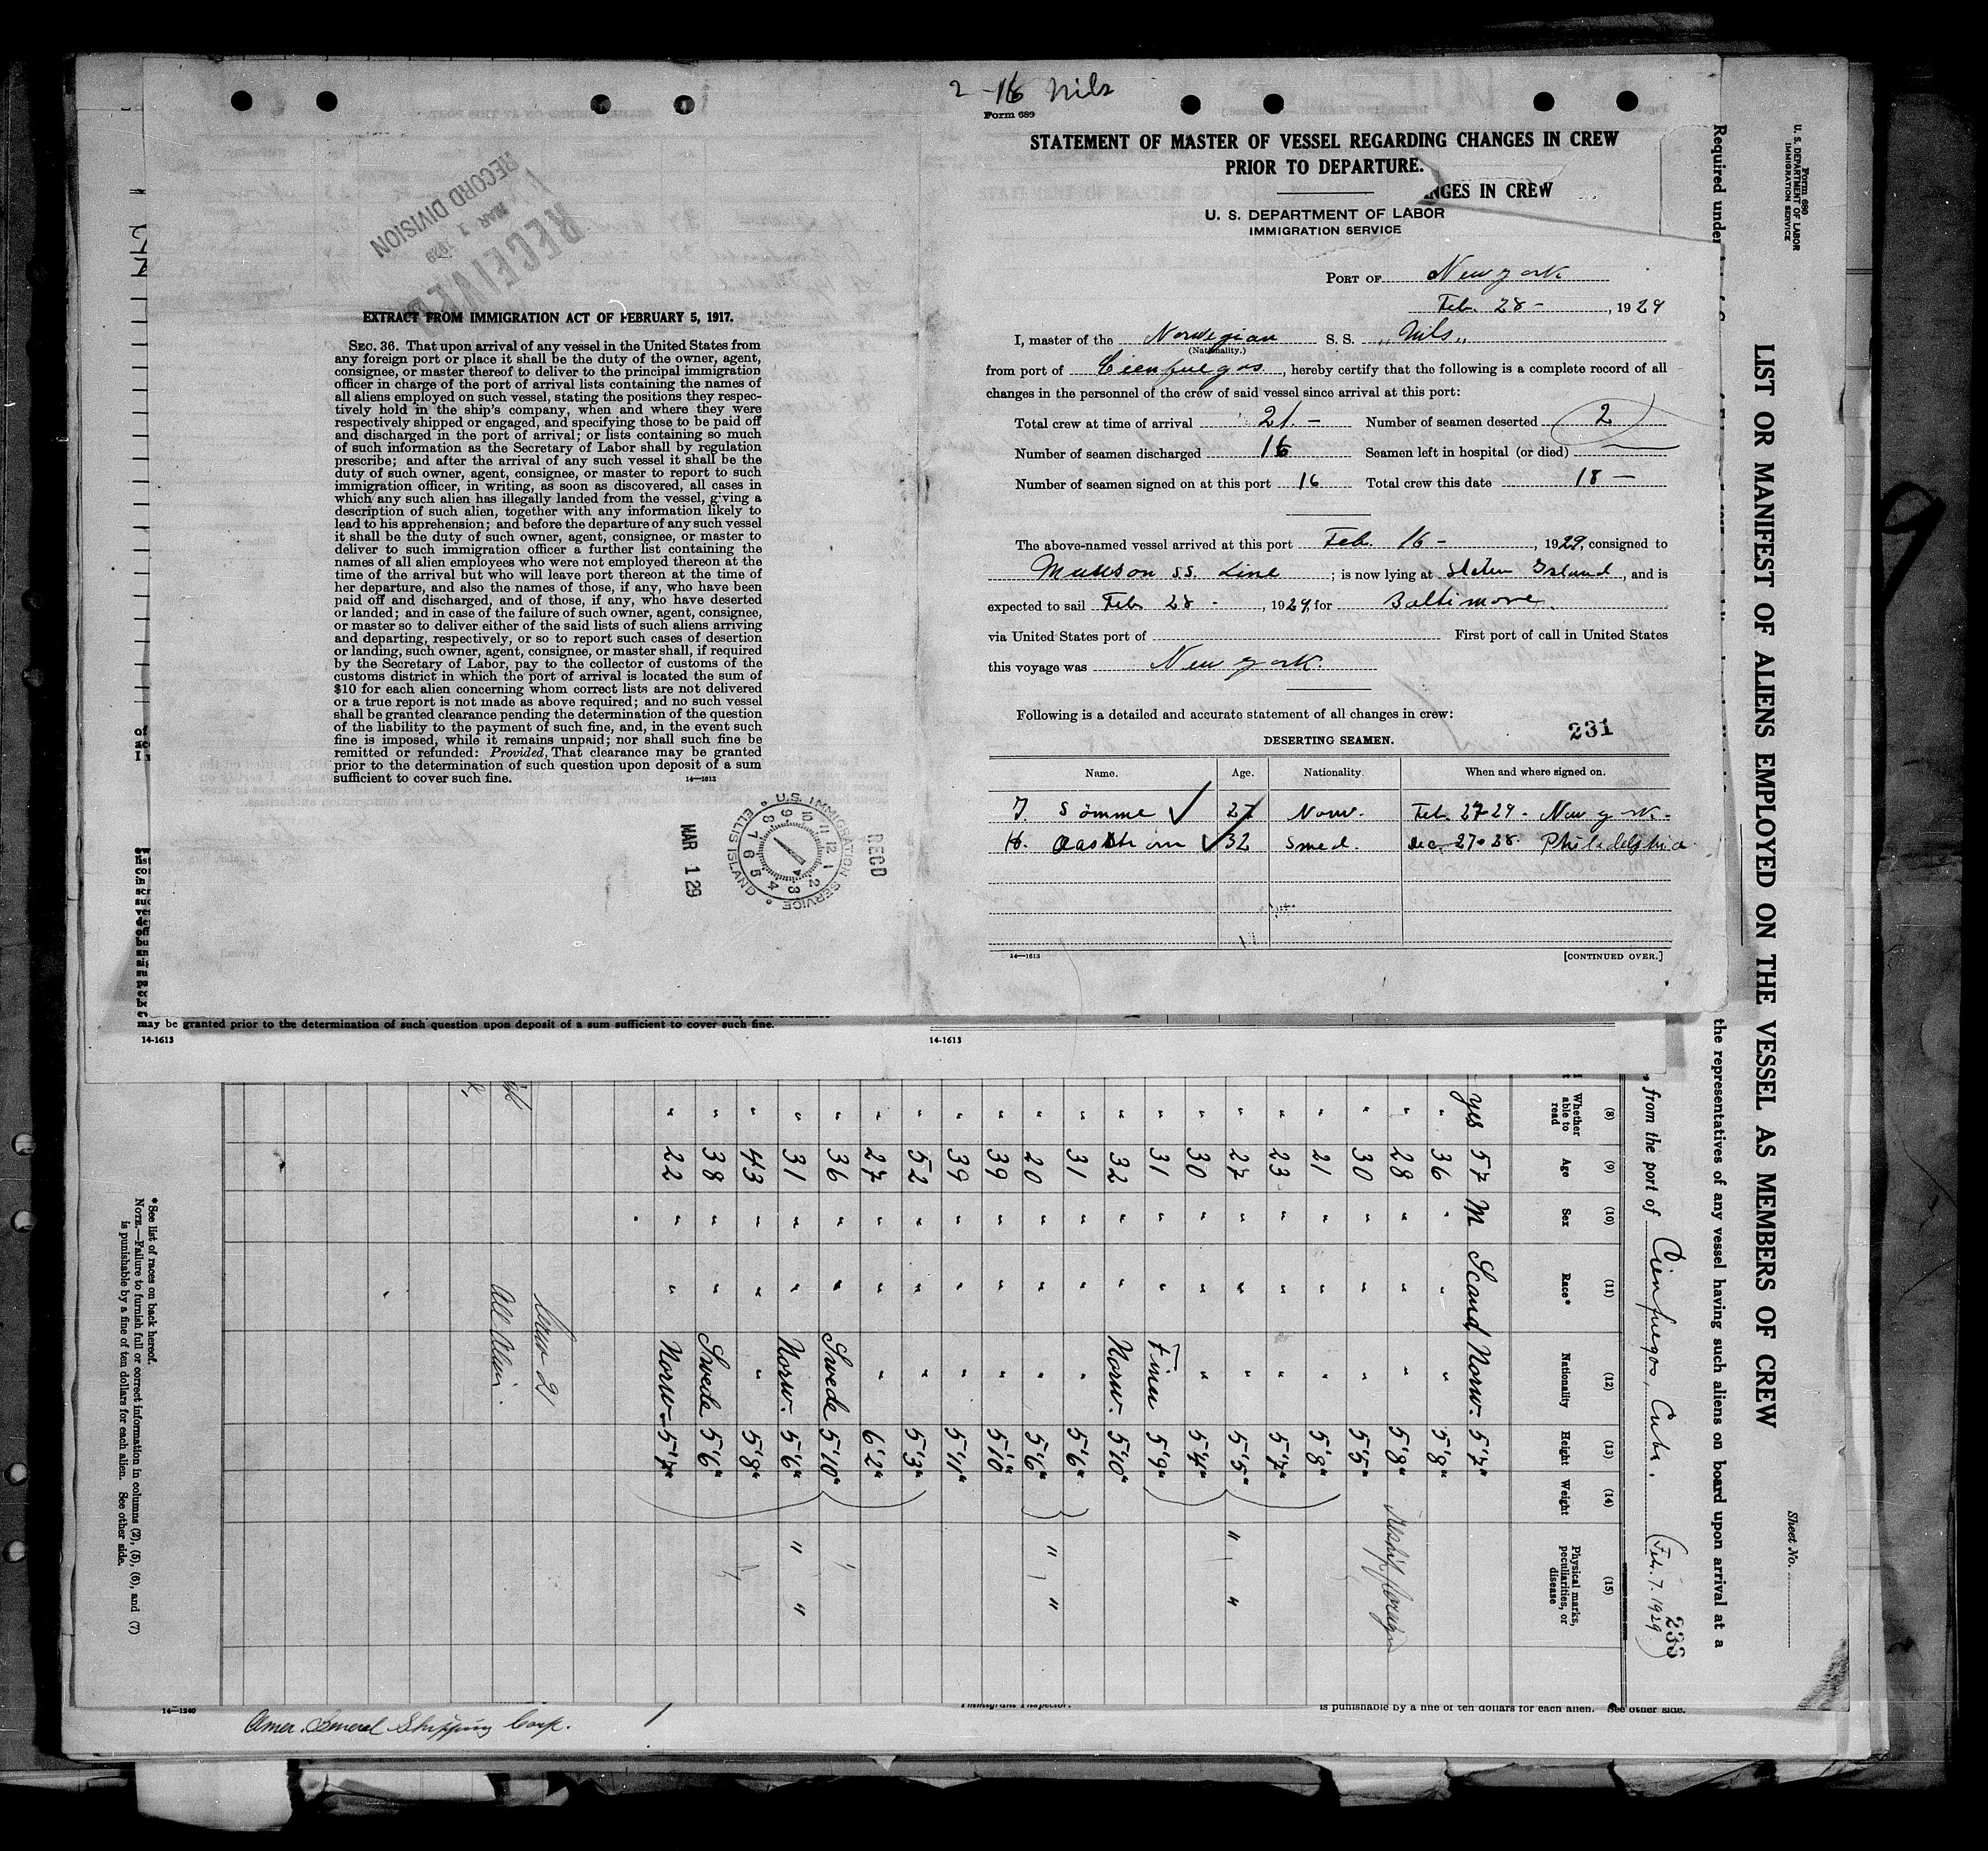 2-16 Nils
Form 689
STATEMENT OF MASTER OF VESSEL REGARDING CHANGES IN CREW
PRIOR TO DEPARTURE.
NGES IN CREW
U. S. DEPARTMENT OF LABOR
IMMIGRATION SERVICE
PORT OF New york
Feb. 28 - , 1929
I, master of the Norwegian S. S. „Nils„
(Nationality.)
from port of Cienfuegos, hereby certify that the following is a complete record of all
changes in the personnel of the crew of said vessel since arrival at this port:
Total crew at time of arrival 21. - Number of seamen deserted 2
Number of seamen discharged 16 Seamen left in hospital (or died)
Number of seamen signed on at this port 16 Total crew this date 18 -
The above-named vessel arrived at this port Feb. 16 - , 1929, consigned to
Munson ss. Line ; is now lying at Staten Island, and is
expected to sail Feb 28 - , 1929, for Baltimore.
via United States port of First port of call in United States
this voyage was New york.
Following is a detailed and accurate statement of all changes in crew:
231
DESERTING SEAMEN.
Name. Age. Nationality When and where signed on.
J. Sömme 27 Norw. Feb. 27-29 - New york -
H. 32 Swed. Dec 27-28. Philadelphia
14—1613 [CONTINUED OVER.]
RECEIVED
MAR 1 1929
RECORD DIVISION
EXTRACT FROM IMMIGRATION ACT OF FEBRUARY 5, 1917.
SEC. 36. That upon arrival of any vessel in the United States from
any foreign port or place it shall be the duty of the owner, agent,
consignee, or master thereof to deliver to the principal immigration
officer in charge of the port of arrival lists containing the names of
all aliens employed on such vessel, stating the positions they respec-
tively hold in the ship's company, when and where they were
respectively shipped or engaged, and specifying those to be paid off
and discharged in the port of arrival; or lists containing so much
of such information as the Secretary of Labor shall by regulation
prescribe; and after the arrival of any such vessel it shall be the
duty of such owner, agent, consignee, or master to report to such
immigration officer, in writing, as soon as discovered, all cases in
which any such alien has illegally landed from the vessel, giving a
description of such alien, together with any information likely to
lead to his apprehension; and before the departure of any such vessel
it shall be the duty of such owner, agent, consignee, or master to
deliver to such immigration officer a further list containing the
names of all alien employees who were not employed thereon at the
time of the arrival but who will leave port thereon at the time of
her departure, and also the names of those, if any, who have been
paid off and discharged, and of those, if any, who have deserted
or landed; and in case of the failure of such owner, agent, consignee,
or master so to deliver either of the said lists of such aliens arriving
and departing, respectively, or so to report such cases of desertion
or landing, such owner, agent, consignee, or master shall, if required
by the Secretary of Labor, pay to the collector of customs of the
customs district in which the port of arrival is located the sum of
$10 for each alien concerning whom correct lists are not delivered
or a true report is not made as above required; and no such vessel
shall be granted clearance pending the determination of the question
of the liability to the payment of such fine, and, in the event such
fine is imposed, while it remains unpaid; nor shall such fine be
remitted or refunded: Provided, That clearance may be granted
prior to the determination of such question upon deposit of a sum
sufficient to cover such fine. 14—1613
RECD
U.S. IMMIGRATION SERVICE
ELLIS ISLAND
MAR 1 29
may be granted prior to the determination of such question upon deposit of a sum sufficient to cover such fine.
14-1613 14-1613
Form 680
U. S. DEPARTMENT OF LABOR
IMMIGRATION SERVICE
Sheet No.
LIST OR MANIFEST OF ALIENS EMPLOYED ON THE VESSEL AS MEMBERS OF CREW
Required under
the representatives of any vessel having such aliens on board upon arrival at a
from the port of Cienfuegos, Cuba. (Feb. 7. 1929)
233
(8) (9) (10) (11) (12) (13) (14) (15)
Whether able to read Age Sex Race* Nationality Height Weight Physical marks, peculiarities, or disease
yes 57 M Scand Norw. 5'7"
" 36 " " " 5'8"
" 28 " " " 5'8"
" 30 " " " 5'5"
" 21 " " " 5'8"
" 23 " " " 5'7"
" 27 " " " 5'5" " "
" 30 " " " 5'4"
" 31 " " Finn 5'9"
" 32 " " Norw. 5'10"
" 31 " " " 5'6"
" 20 " " " 5'6" " "
" 39 " " " 5'10"
" 39 " " " 5'11"
" 52 " " " 5'3"
" 27 " " " 6'2"
" 36 " " Swede 5'10"
" 31 " " Norw. 5'6" " "
" 43 " " " 5'8"
" 38 " " Swede 5'6"
" 22 " " Norw. 5'7"
Crew 21
All Alien.
*See list of races on back hereof.
NOTE.—Failure to furnish full or correct information in columns (2), (5), (6), and (7)
is punishable by a fine of ten dollars for each alien. See other side.
14—1240
Immigrant Inspector.
is punishable by a fine of ten dollars for each alien. See other side.
Amer. General Shipping Corp.